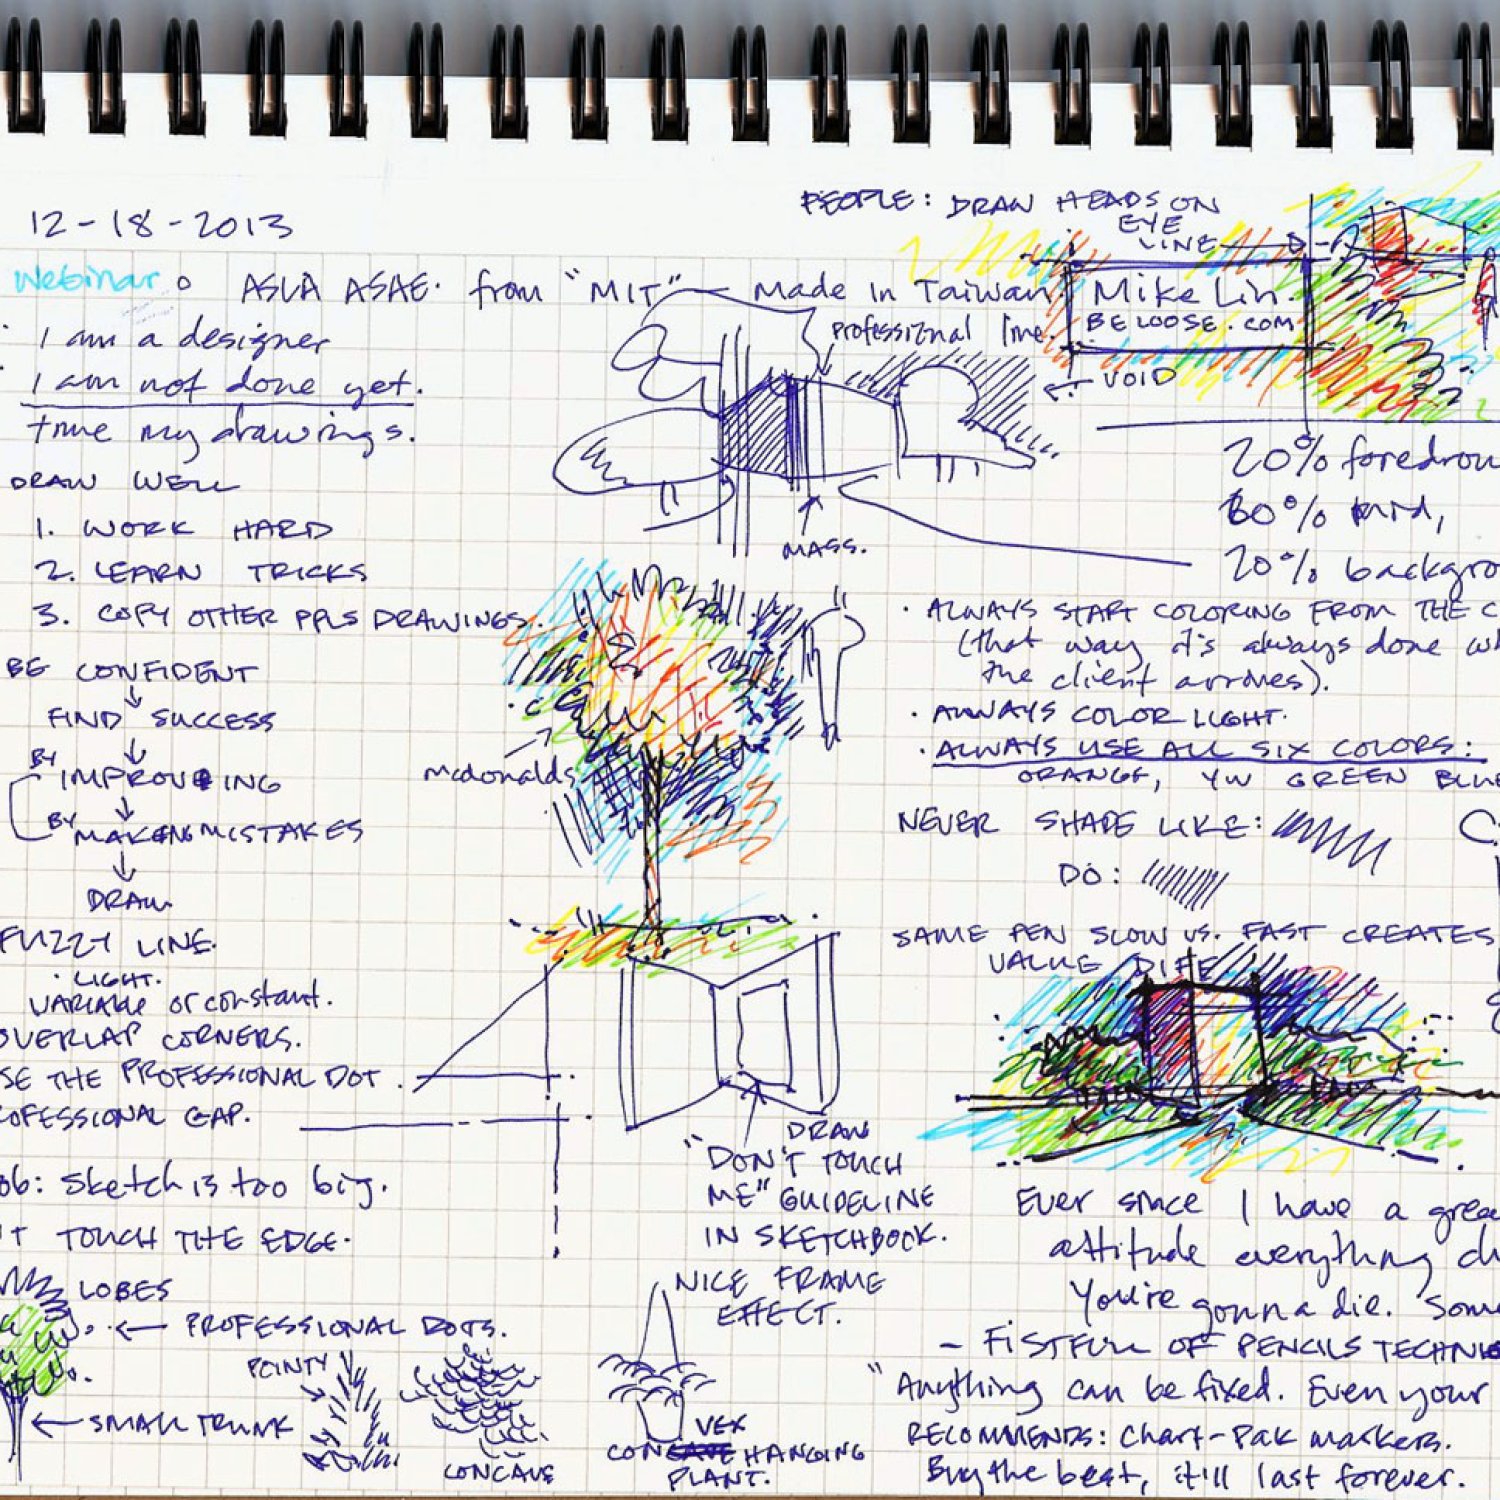 12-18-2013
Webinar: ASLA ASAE. from "MIT" — Made in Taiwan.
I am a designer
I am not done yet.
time my drawings.
DRAW WELL
1. WORK HARD
2. LEARN TRICKS
3. COPY OTHER PPLS DRAWINGS.
BE CONFIDENT
FIND SUCCESS
BY IMPROVING
BY MAKING MISTAKES
DRAW
FUZZY LINE.
· LIGHT.
VARIABLE or constant.
OVERLAP CORNERS.
SE THE PROFESSIONAL DOT.
OFESSIONAL GAP.
ob: Sketch is too big.
'T TOUCH THE EDGE.
LOBES
PROFESSIONAL DOTS.
SMALL TRUNK
POINTY
CONCAVE
CONVEX HANGING
PLANT.
NICE FRAME
EFFECT.
DRAW
"DON'T TOUCH
ME" GUIDELINE
IN SKETCHBOOK.
mcdonalds
MASS.
professional line.
VOID
PEOPLE: DRAW HEADS ON
EYE
LINE
Mike Lin.
BELOOSE.COM
20% foregrou
60% mid,
20% backgro
· ALWAYS START COLORING FROM THE C
(that way it's always done w
the client arrives).
· ALWAYS COLOR LIGHT.
· ALWAYS USE ALL SIX COLORS:
ORANGE, YW GREEN BLUE
NEVER SHADE LIKE:
DO:
SAME PEN SLOW VS. FAST CREATES
VALUE DIFF
Ever since I have a grea
attitude everything ch
You're gonna die. Som
- FISTFULL OF PENCILS TECHNI
"Anything can be fixed. Even your
RECOMMENDS: Chart-Pak markers.
Buy the best, it'll last forever.